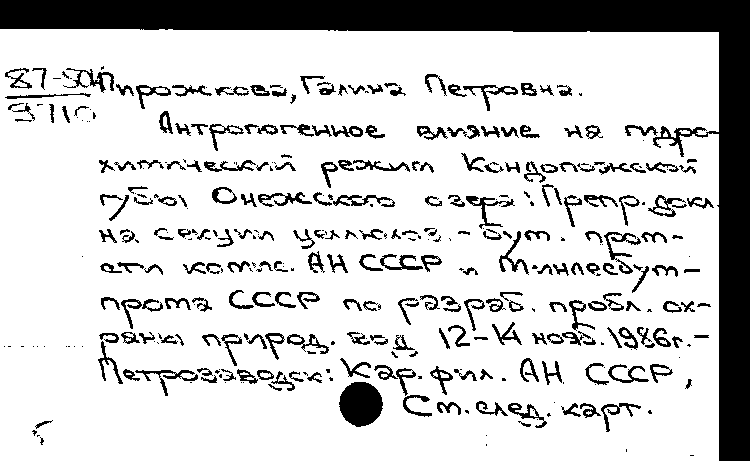 87-504
9710
Пирожкова, Галина Петровна.
Антропогенное влияние на гидро-
химический режим Кондопожской
губы Онежского озера: Препр. докл.
на секции целлюлоз.-бум. пром-
сти комис. АН СССР и Минлесбум-
прома СССР по разраб. пробл. ох-
раны природ. вод 12-14 нояб. 1986г.-
Петрозаводск: Кар. фил. АН СССР,
См. след. карт.